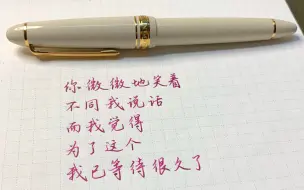 你微微地笑着
不同我说话
而我觉得
为了这个
我已等待很久了